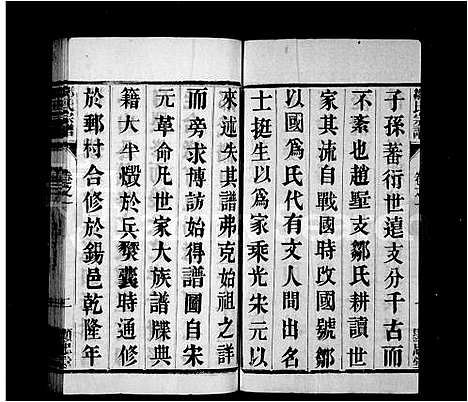 子孫蕃衍世遠支分千古而
不紊也趙墅支鄒氏耕讀世
家其流自戰國時改國號鄒
以國為氏代有文人間出名
士挺生以為家乘光宋元以
來述失其譜弗克始祖之詳
而旁求博訪始得譜圖自宋
元革命凡世家大族譜牒典
籍大半燬於兵爨曩時通修
於郵村合修於錫邑乾隆年